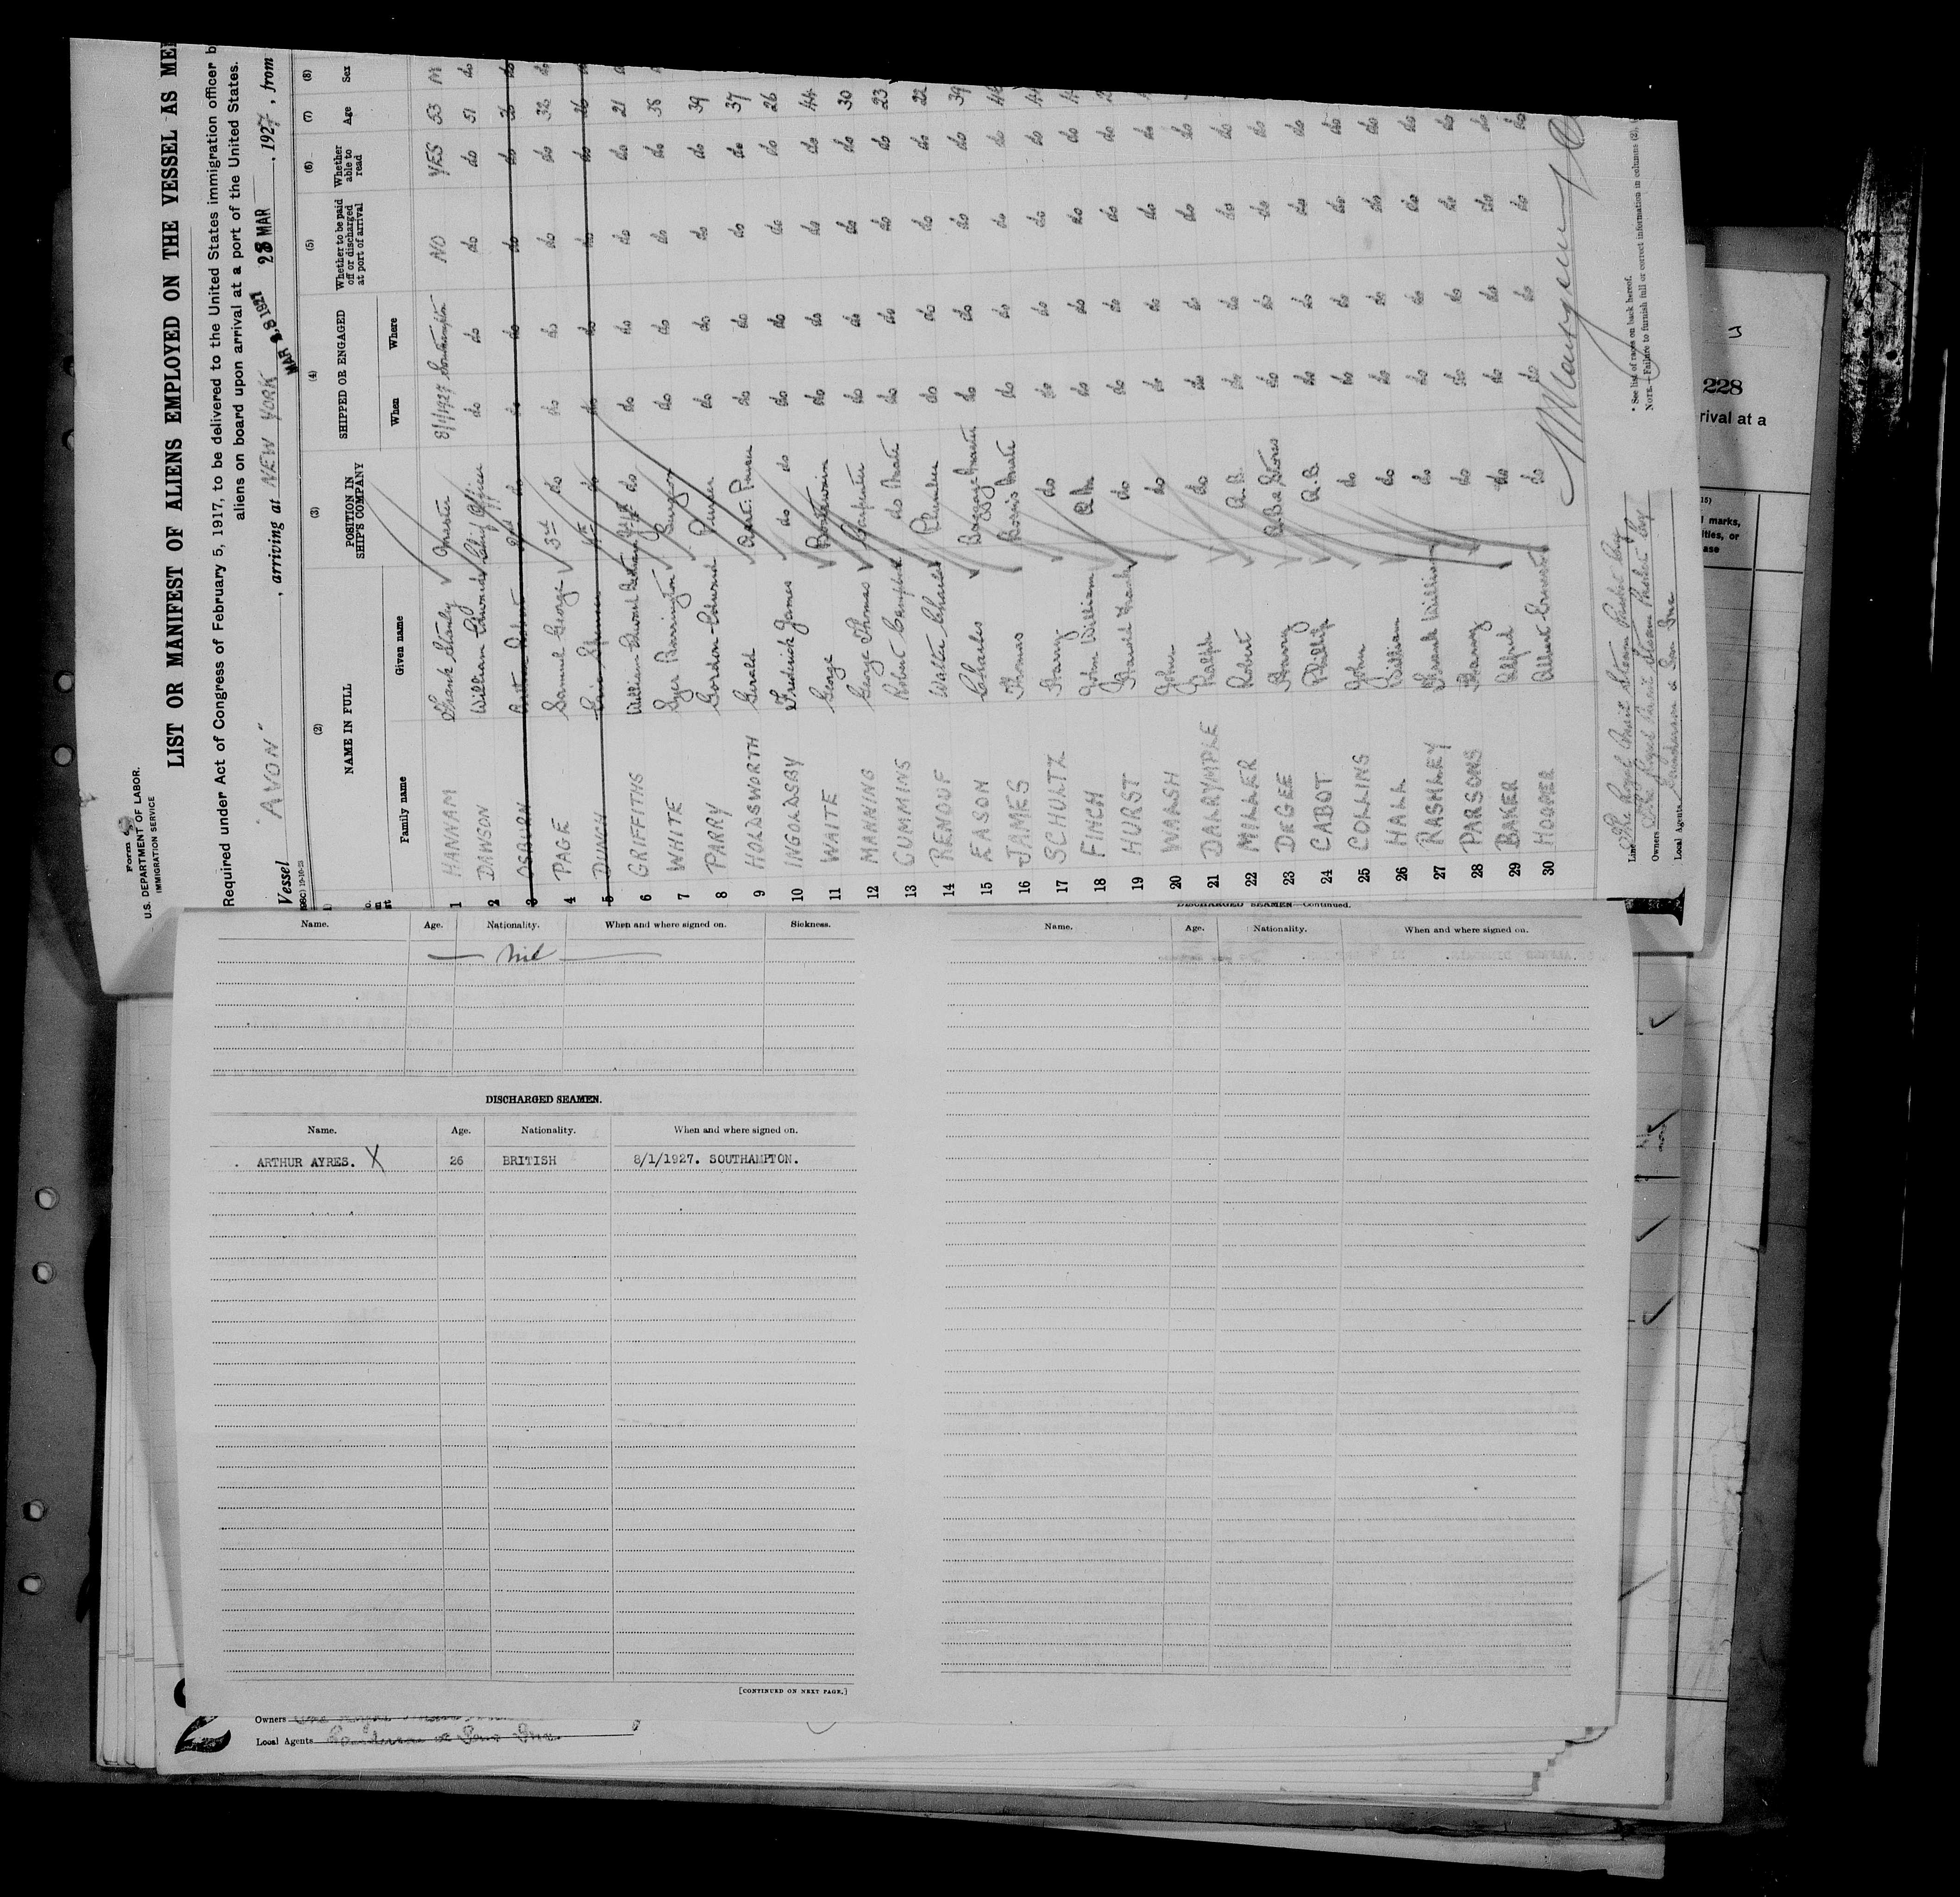 Form
U.S. DEPARTMENT OF LABOR.
IMMIGRATION SERVICE
LIST OR MANIFEST OF ALIENS EMPLOYED ON THE VESSEL AS ME
Required under Act of Congress of February 5, 1917, to be delivered to the United States immigration officer b
aliens on board upon arrival at a port of the United States.
Vessel "AVON", arriving at NEW YORK MAR 28 1927 28 MAR, 1927, from
(2) (3) (4) (5) (6) (7) (8)
NAME IN FULL POSITION IN SHIP'S COMPANY SHIPPED OR ENGAGED Whether to be paid off or discharged at port of arrival Whether able to read Age Sex
Family name Given name When Where
1 HANNAM Frank Stanley Master 8/1/1927 Southampton NO YES 53 M
2 DAWSON William Edward Chief Officer do do do do 51 do
3 OSBURN 2nd do do do do do do
4 PAGE Samuel George 3rd do do do do do 32 do
5 DUNCH Eric 4th do do do do do 26
6 GRIFFITHS William Edward do do do do do 21
7 WHITE Barrington Surgeon do do do do 38
8 PARRY Gordon Edward Purser do do do do 39
9 HOLDSWORTH Gerald Asst: Purser do do do do 37
10 INGOLDSBY Frederick James do do do do do do 26
11 WAITE George Boatswain do do do do 44
12 MANNING George Thomas Carpenter do do do do 30
13 CUMMINS Robert do Mate do do do do 23
14 RENOUF Walter Charles Plumber do do do do 22
15 EASON Charles Baggage Master do do do do 39
16 JAMES Thomas Bosn's Mate do do do do
17 SCHULTZ Harry do do do do do
18 FINCH John William Q.M. do do do do
19 HURST Harold Frank do do do do do
20 WALSH John do do do do do
21 DALRYMPLE Ralph do do do do do
22 MILLER Robert A.B. do do do do
23 DEGEE Harry A.B. & Stores do do do do
24 CABOT Philip A.B. do do do do
25 COLLINS John do do do do do
26 HALL William do do do do do
27 RASHLEY Frank William do do do do do
28 PARSONS Harry do do do do do
29 BAKER Alfred do do do do do
30 HOOPER Albert Ernest do do do do do
Line The Royal Mail Steam Packet Coy
Owners The Royal Mail Steam Packet Coy
Local Agents Sanderson & Son Inc
* See list of races on back hereof.
NOTE.—Failure to furnish full or correct information in columns (2),
1
228
rival at a
marks,
ities, or
ase
Name. Age. Nationality. When and where signed on. Sickness.
nil
DISCHARGED SEAMEN.
Name. Age. Nationality. When and where signed on.
ARTHUR AYRES. X 26 BRITISH 8/1/1927. SOUTHAMPTON.
[CONTINUED ON NEXT PAGE.]
DISCHARGED SEAMEN—Continued.
Name. Age. Nationality. When and where signed on.
2
Owners
Local Agents Sanderson & Son Inc.